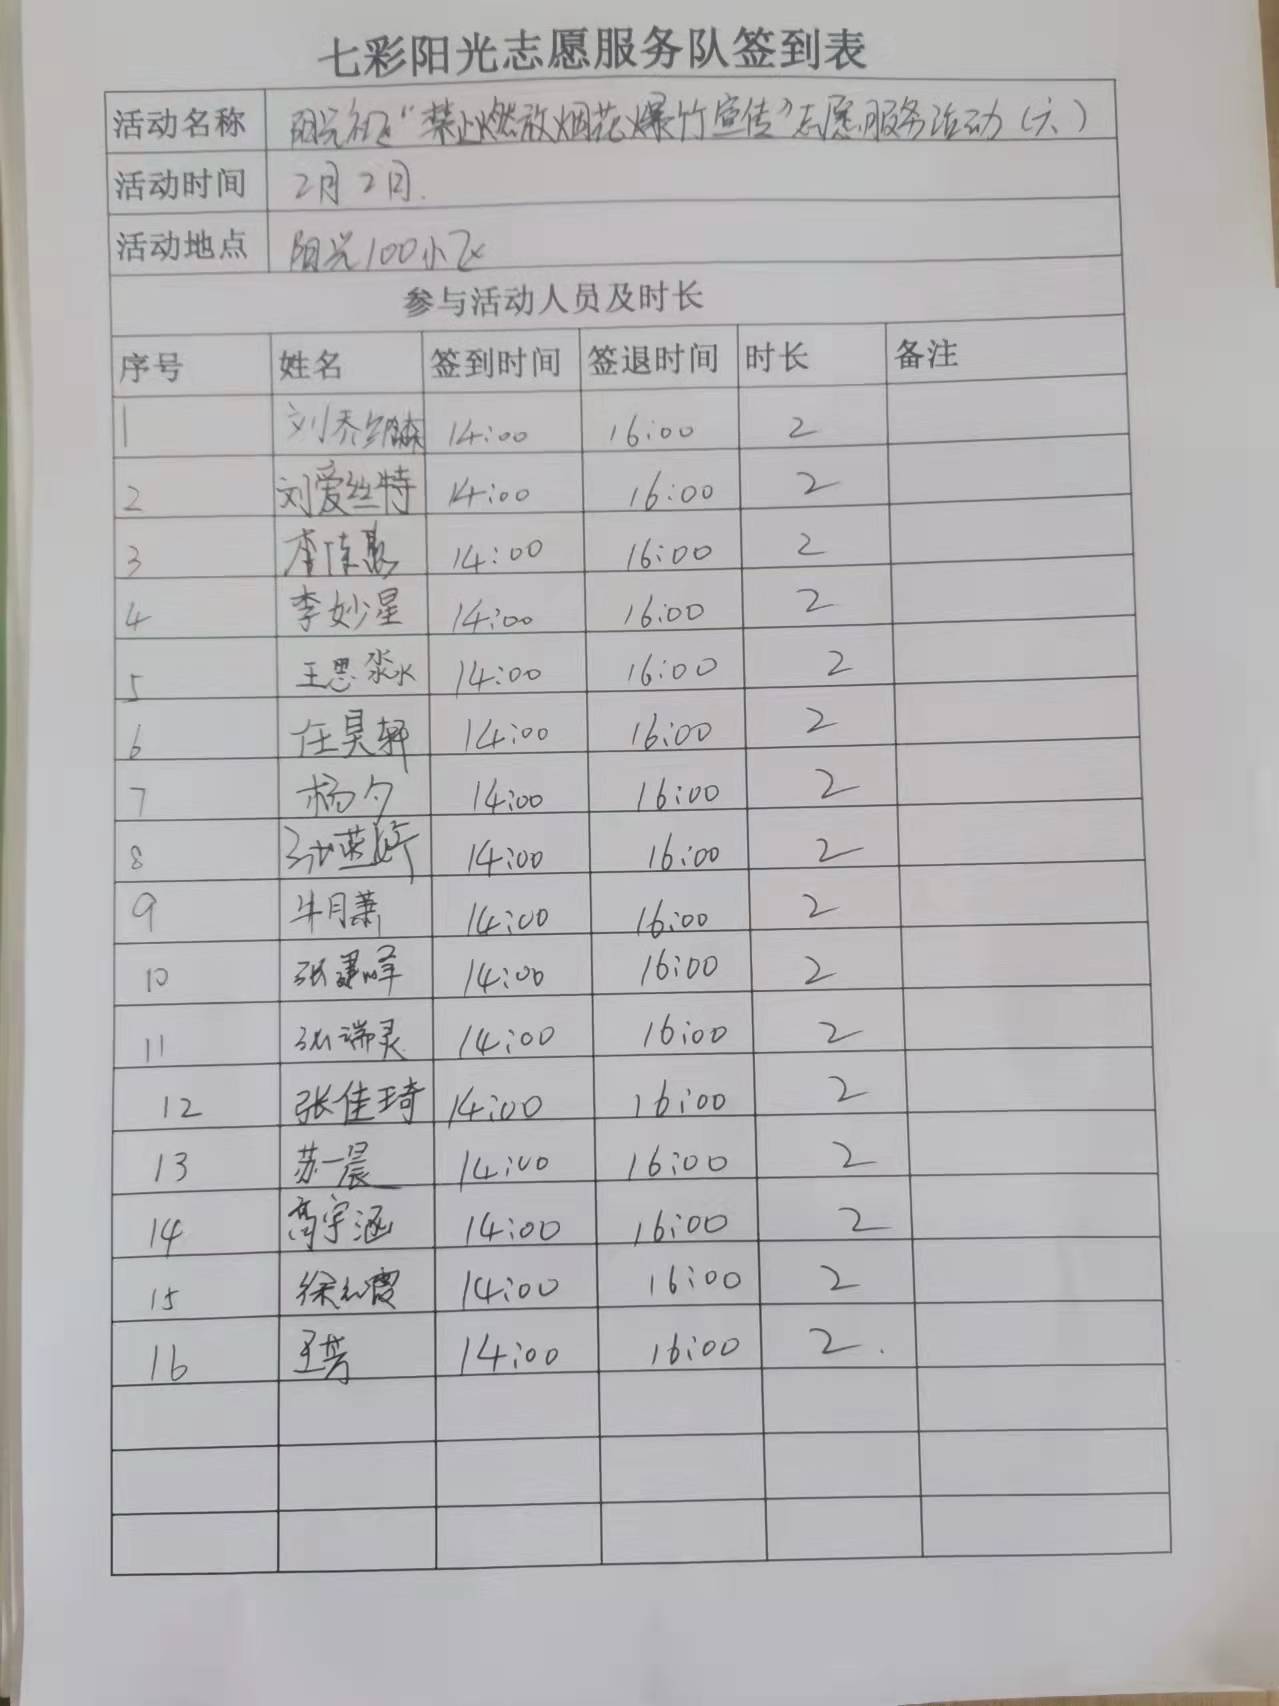 七彩阳光志愿服务队签到表
活动名称 阳光社区“禁止燃放烟花爆竹宣传”志愿服务活动(六)
活动时间 2月2日.
活动地点 阳光100小区
参与活动人员及时长
序号 姓名 签到时间 签退时间 时长 备注
1 刘乔 14:00 16:00 2
2 刘爱丝特 14:00 16:00 2
3 李佳 14:00 16:00 2
4 李妙星 14:00 16:00 2
5 王思淼 14:00 16:00 2
6 任昊轩 14:00 16:00 2
7 杨夕 14:00 16:00 2
8 张蓝婷 14:00 16:00 2
9 牛月萧 14:00 16:00 2
10 张建峰 14:00 16:00 2
11 张瑞灵 14:00 16:00 2
12 张佳琦 14:00 16:00 2
13 苏一晨 14:00 16:00 2
14 高宇涵 14:00 16:00 2
15 徐霞 14:00 16:00 2
16 王芳 14:00 16:00 2.